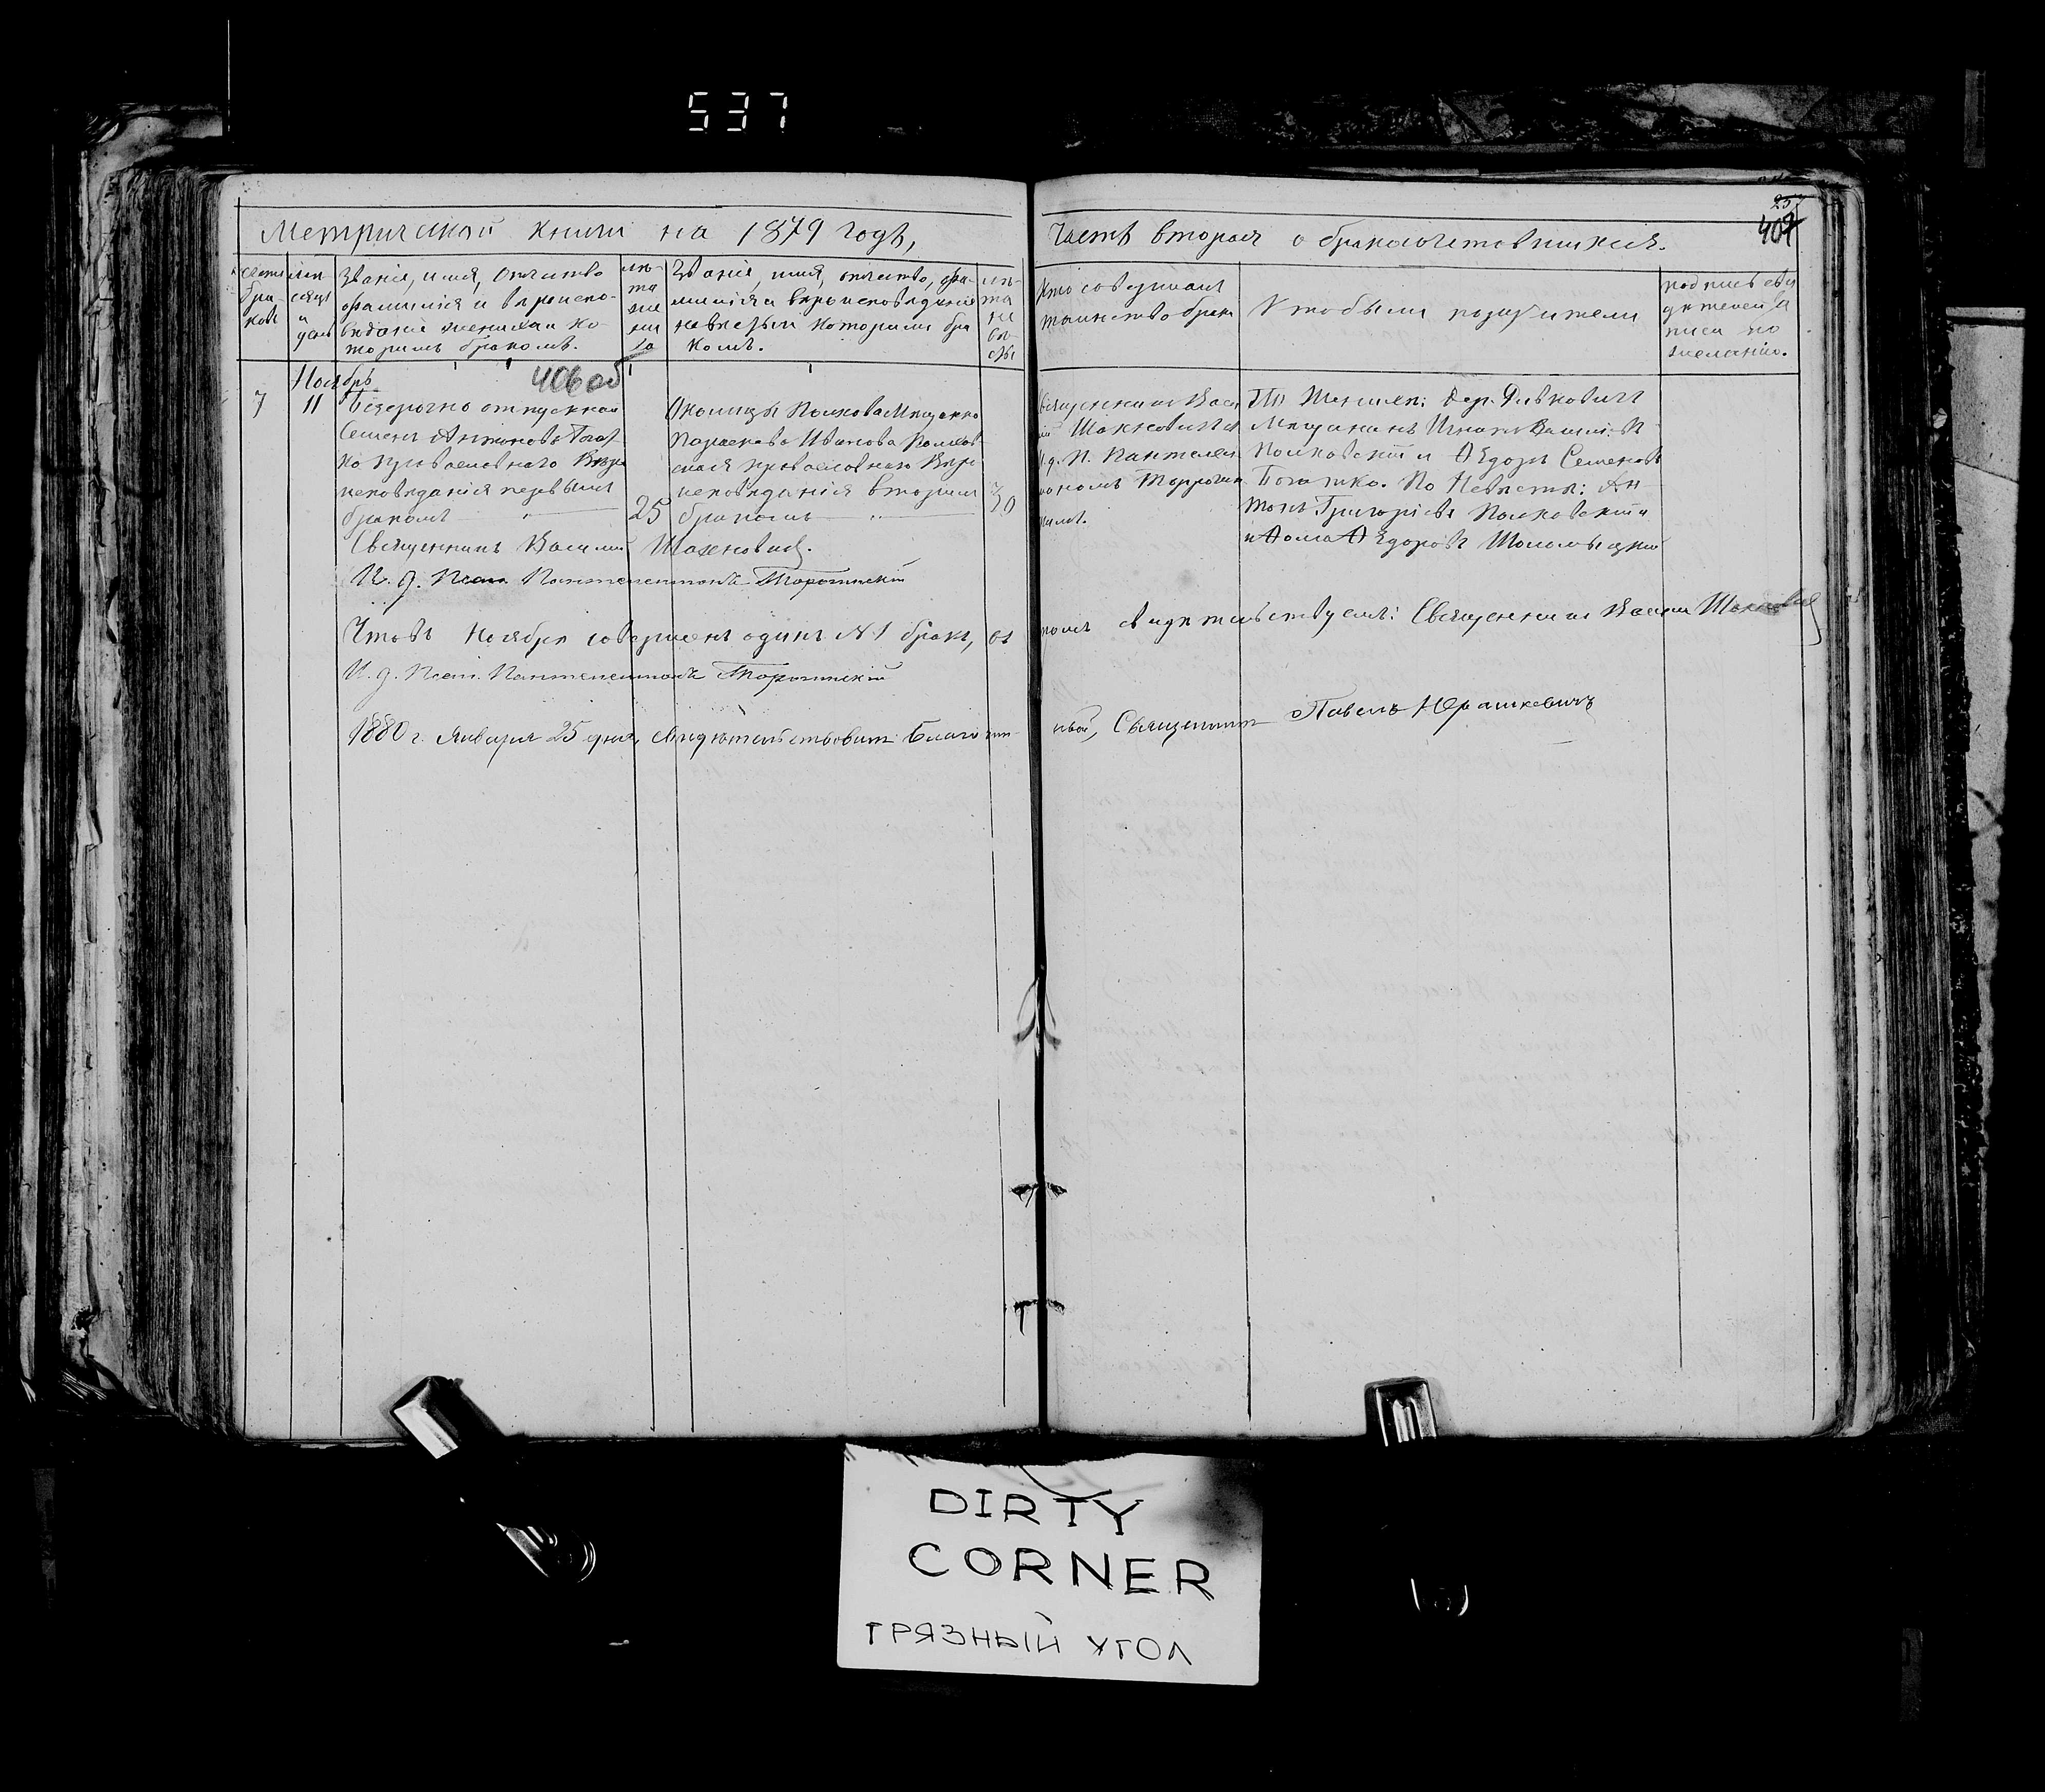 537
Метрической книги на 1879 годъ,
Часть вторая о бракосочетавшихся.
257
407
счетъ бра- ковъ
мѣ- сяцъ и день
Званіе, имя, отчество
фамилія и вѣроиспо-
вѣданіе жениха и ко-
торымъ бракомъ.
лѣ- та же- ни- ха
Званіе, имя, отчество, фа-
милія и вѣроисповѣданіе
невѣсты и которымъ бра
комъ.
лѣ- та не вѣ- сты
Кто совершалъ
таинство брака
Кто были поручители
подпись сви
дѣтелей за
писи по
желанію.
406 об
Ноябрь
7
11
Безсрочно отпускной
Семенъ Антоновъ Богат
ко православнаго Вѣро
исповѣданія первымъ
бракомъ
25
Околицы Полкова Мѣщанка
Параскева Иванова Полков
ская православнаго Вѣро
исповѣданія вторымъ
бракомъ
30
Священникъ Васи
лій Шахновичъ
И. д. П. Пантелей
мономъ Торочин
скимъ.
По Женихѣ: Дер.
Мѣщанинъ Игнатъ
Полковскій и Ѳедоръ Семеновъ
Богатко. По Невѣстѣ: Ан
тонъ Григорьевъ Полковскій
и Ѳома Ѳедоровъ
Священникъ Василій Шахновичъ.
И. д. Псал. Пантелеимонъ Торочинскій
Что въ Ноябрѣ совершенъ одинъ № 1 бракъ, въ
томъ свидѣтельствуемъ: Священникъ Василій Шахновичъ
И. д. Псал. Пантелеимонъ Торочинскій
1880 г. Января 25 дня, свидѣтельствовалъ Благочин-
ный, Священникъ Павелъ Юрашкевичъ
DIRTY
CORNER
ГРЯЗНЫЙ УГОЛ